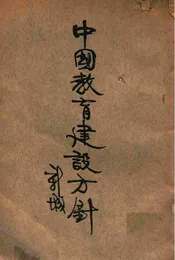 中國教育建設方針